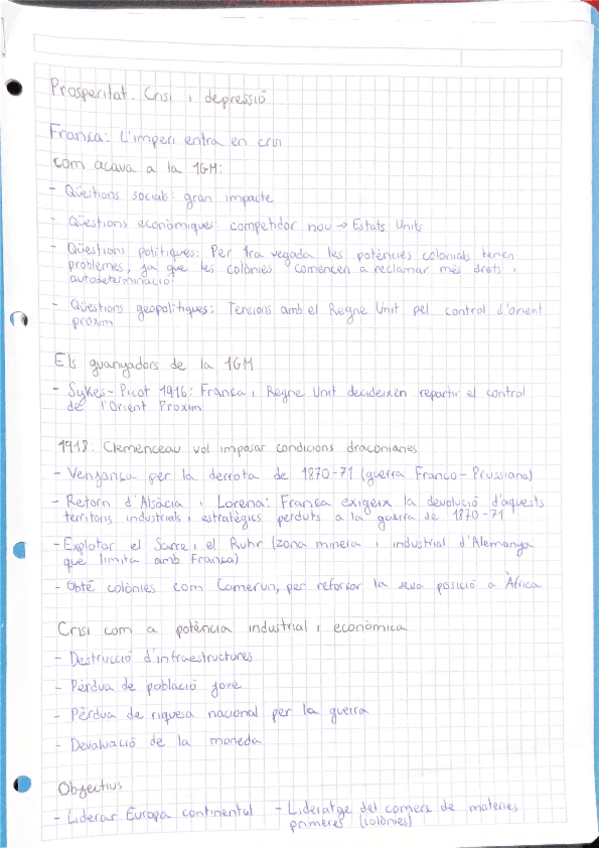 Prosperitat. Crisi i depressió
França: L'imperi entra en crisi
com acava a la 1GM:
- Qüestions socials: gran impacte
- Qüestions econòmiques: competidor nou → Estats Units
- Qüestions polítiques: Per 1ra vegada les potències colonials tenen
problemes, ja que les colònies comencen a reclamar més drets i
autodeterminació
- Qüestions geopolítiques: Tensions amb el Regne Unit pel control d'orient
pròxim
Els guanyadors de la 1GM
- Sykes-Picot 1916: França i Regne Unit decideixen repartir el control
de l'Orient Pròxim
1918: Clemenceau vol imposar condicions draconianes
- Venjança per la derrota de 1870-71 (guerra Franco-Prussiana)
- Retorn d'Alsàcia i Lorena: França exigeix la devolució d'aquests
territoris industrials i estratègics perduts a la guerra de 1870-71
- Explotar el Sarre i el Ruhr (zona minera i industrial d'Alemanya
que limita amb França)
- Obté colònies com Camerun, per reforçar la seva posició a Àfrica
Crisi com a potència industrial i econòmica
- Destrucció d'infraestructures
- Pèrdua de població jove
- Pèrdua de riquesa nacional per la guerra
- Devaluació de la moneda
Objectius
- Liderar Europa continental - Lideratge del comerç de matèries
primeres (colònies)